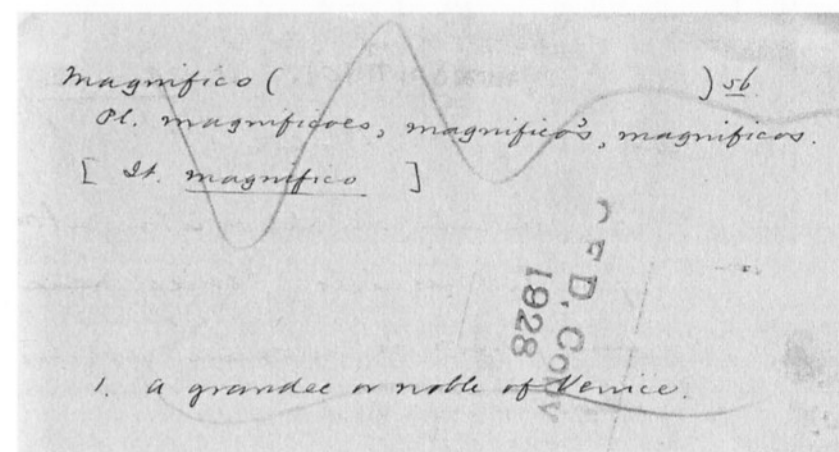 Magnifico ( ) sb.
Pl. magnificoes, magnifico's, magnificos.
[ It. magnifico ]
E D, Copy
1928
1. A grandee or noble of Venice.